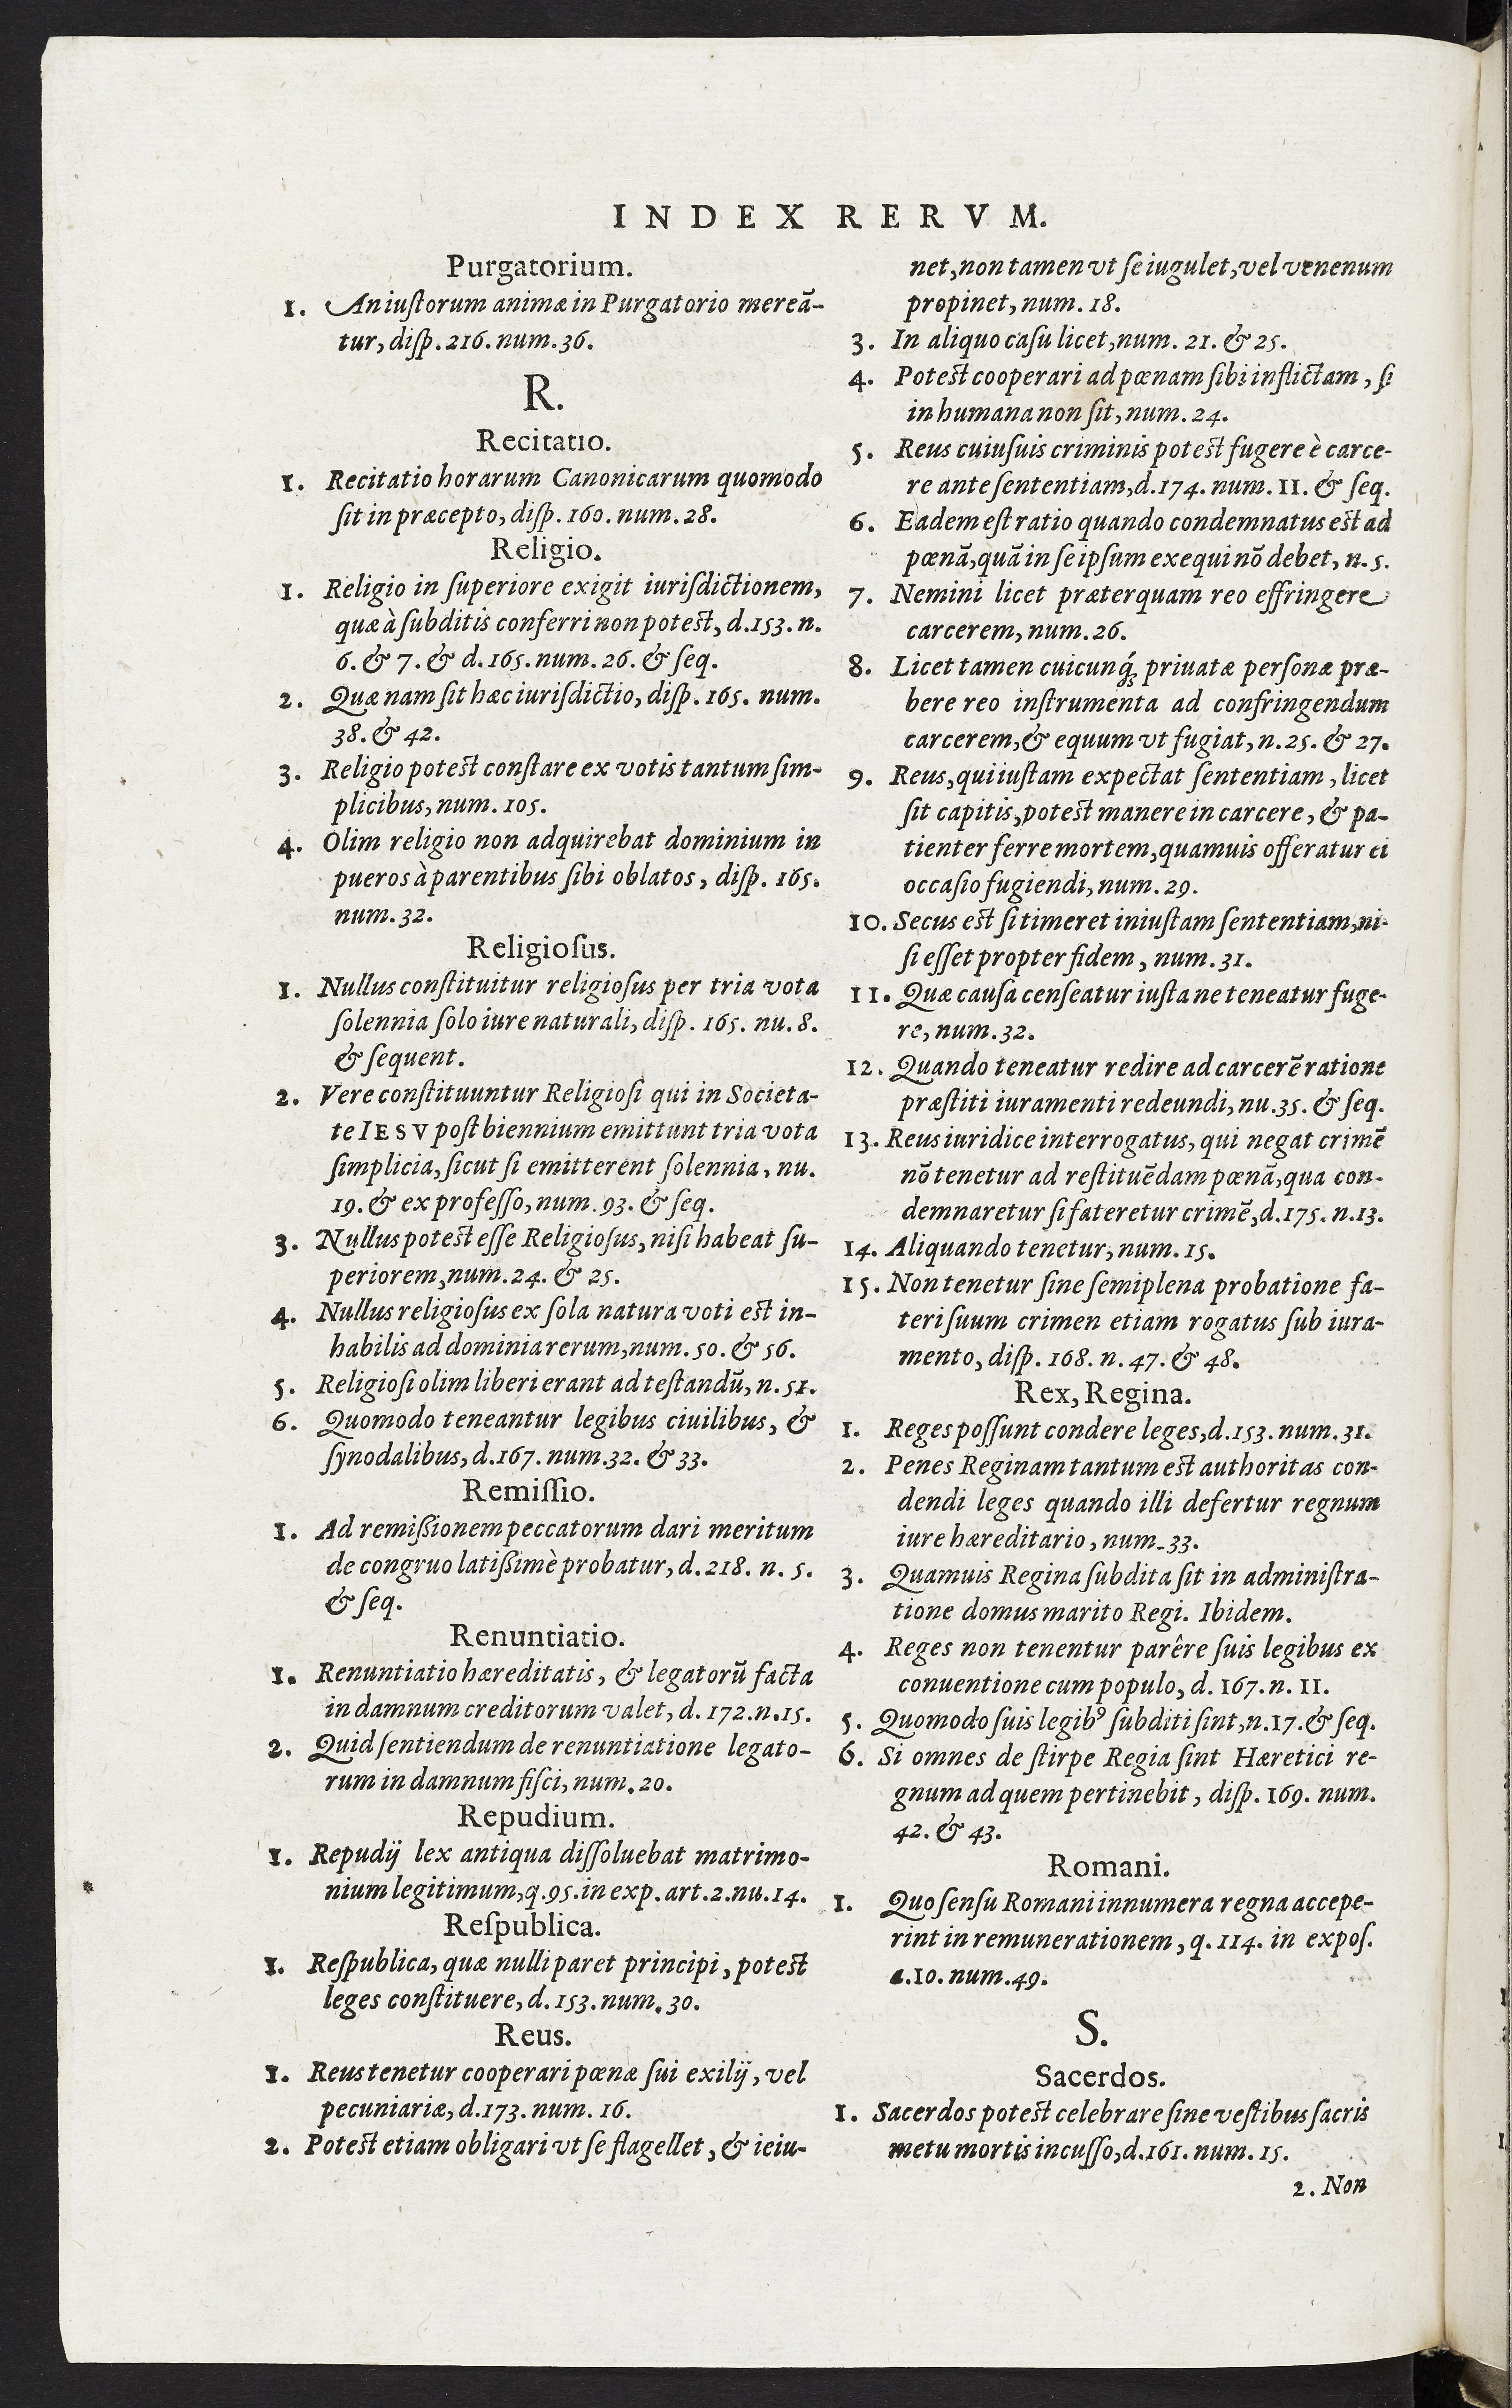 INDEX RERVM.
Purgatorium.
1. An iuſtorum animæ in Purgatorio mereã-
tur, diſp. 216. num. 36.
R.
Recitatio.
1. Recitatio horarum Canonicarum quomodo
ſit in præcepto, diſp. 160. num. 28.
Religio.
1. Religio in ſuperiore exigit iuriſdictionem,
quæ à ſubditis conferri non poteſt, d. 153. n.
6. & 7. & d. 165. num. 26. & ſeq.
2. Quænam ſit hæc iuriſdictio, diſp. 165. num.
38. & 42.
3. Religio poteſt conſtare ex votis tantum ſim-
plicibus, num. 105.
4. Olim religio non adquirebat dominium in
pueros à parentibus ſibi oblatos, diſp. 165.
num. 32.
Religioſus.
1. Nullus conſtituitur religioſus per tria vota
ſolennia ſolo iure naturali, diſp. 165. nu. 8.
& ſequent.
2. Vere conſtituuntur Religioſi qui in Societa-
te IESV poſt biennium emittunt tria vota
ſimplicia, ſicut ſi emitterent ſolennia, nu.
19. & ex profeſſo, num. 93. & ſeq.
3. Nullus poteſt eſſe Religioſus, niſi habeat ſu-
periorem, num. 24. & 25.
4. Nullus religioſus ex ſola natura voti eſt in-
habilis ad dominia rerum, num. 50. & 56.
5. Religioſi olim liberi erant ad teſtandũ, n. 51.
6. Quomodo teneantur legibus ciuilibus, &
ſynodalibus, d. 167. num. 32. & 33.
Remiſſio.
1. Ad remißionem peccatorum dari meritum
de congruo latißimè probatur, d. 218. n. 5.
& ſeq.
Renuntiatio.
1. Renuntiatio hæreditatis, & legatorũ facta
in damnum creditorum valet, d. 172. n. 15.
2. Quid ſentiendum de renuntiatione legato-
rum in damnum fiſci, num. 20.
Repudium.
1. Repudij lex antiqua diſſoluebat matrimo-
nium legitimum, q. 95. in exp. art. 2. nu. 14.
Reſpublica.
1. Reſpublica, quæ nulli paret principi, poteſt
leges conſtituere, d. 153. num. 30.
Reus.
1. Reus tenetur cooperari pœnæ ſui exilij, vel
pecuniariæ, d. 173. num. 16.
2. Poteſt etiam obligari vt ſe flagellet, & ieiu-
net, non tamen vt ſe iugulet, vel venenum
propinet, num. 18.
3. In aliquo caſu licet, num. 21. & 25.
4. Poteſt cooperari ad pœnam ſibi inflictam, ſi
inhumana non ſit, num. 24.
5. Reus cuiuſuis criminis poteſt fugere è carce-
re ante ſententiam, d. 174. num. 11. & ſeq.
6. Eadem eſt ratio quando condemnatus eſt ad
pœnã, quã in ſeipſum exequi nõ debet, n. 5.
7. Nemini licet præterquam reo effringere
carcerem, num. 26.
8. Licet tamen cuicunq́; priuatæ perſonæ præ-
bere reo inſtrumenta ad confringendum
carcerem, & equum vt fugiat, n. 25. & 27.
9. Reus, qui iuſtam expectat ſententiam, licet
ſit capitis, poteſt manere in carcere, & pa-
tienter ferre mortem, quamuis offeratur ei
occaſio fugiendi, num. 29.
10. Secus eſt ſi timeret iniuſtam ſententiam, ni-
ſi eſſet propter fidem, num. 31.
11. Quæ cauſa cenſeatur iuſta ne teneatur fuge-
re, num. 32.
12. Quando teneatur redire ad carcerẽ ratione
præſtiti iuramenti redeundi, nu. 35. & ſeq.
13. Reus iuridice interrogatus, qui negat crimẽ
nõ tenetur ad reſtituẽdam pœnã, qua con-
demnaretur ſi fateretur crimẽ, d. 175. n. 13.
14. Aliquando tenetur, num. 15.
15. Non tenetur ſine ſemiplena probatione fa-
teri ſuum crimen etiam rogatus ſub iura-
mento, diſp. 168. n. 47. & 48.
Rex, Regina.
1. Reges poſſunt condere leges, d. 153. num. 31.
2. Penes Reginam tantum eſt authoritas con-
dendi leges quando illi defertur regnum
iure hæreditario, num. 33.
3. Quamuis Regina ſubdita ſit in adminiſtra-
tione domus marito Regi. Ibidem.
4. Reges non tenentur parêre ſuis legibus ex
conuentione cum populo, d. 167. n. 11.
5. Quomodo ſuis legibꝰ ſubditi ſint, n. 17. & ſeq.
6. Si omnes de ſtirpe Regia ſint Hæretici re-
gnum ad quem pertinebit, diſp. 169. num.
42. & 43.
Romani.
1. Quo ſenſu Romani innumera regna accepe-
rint in remunerationem, q. 114. in expoſ.
a. 10. num. 49.
S.
Sacerdos.
1. Sacerdos poteſt celebrare ſine veſtibus ſacris
metu mortis incuſſo, d. 161. num. 15.
2. Non